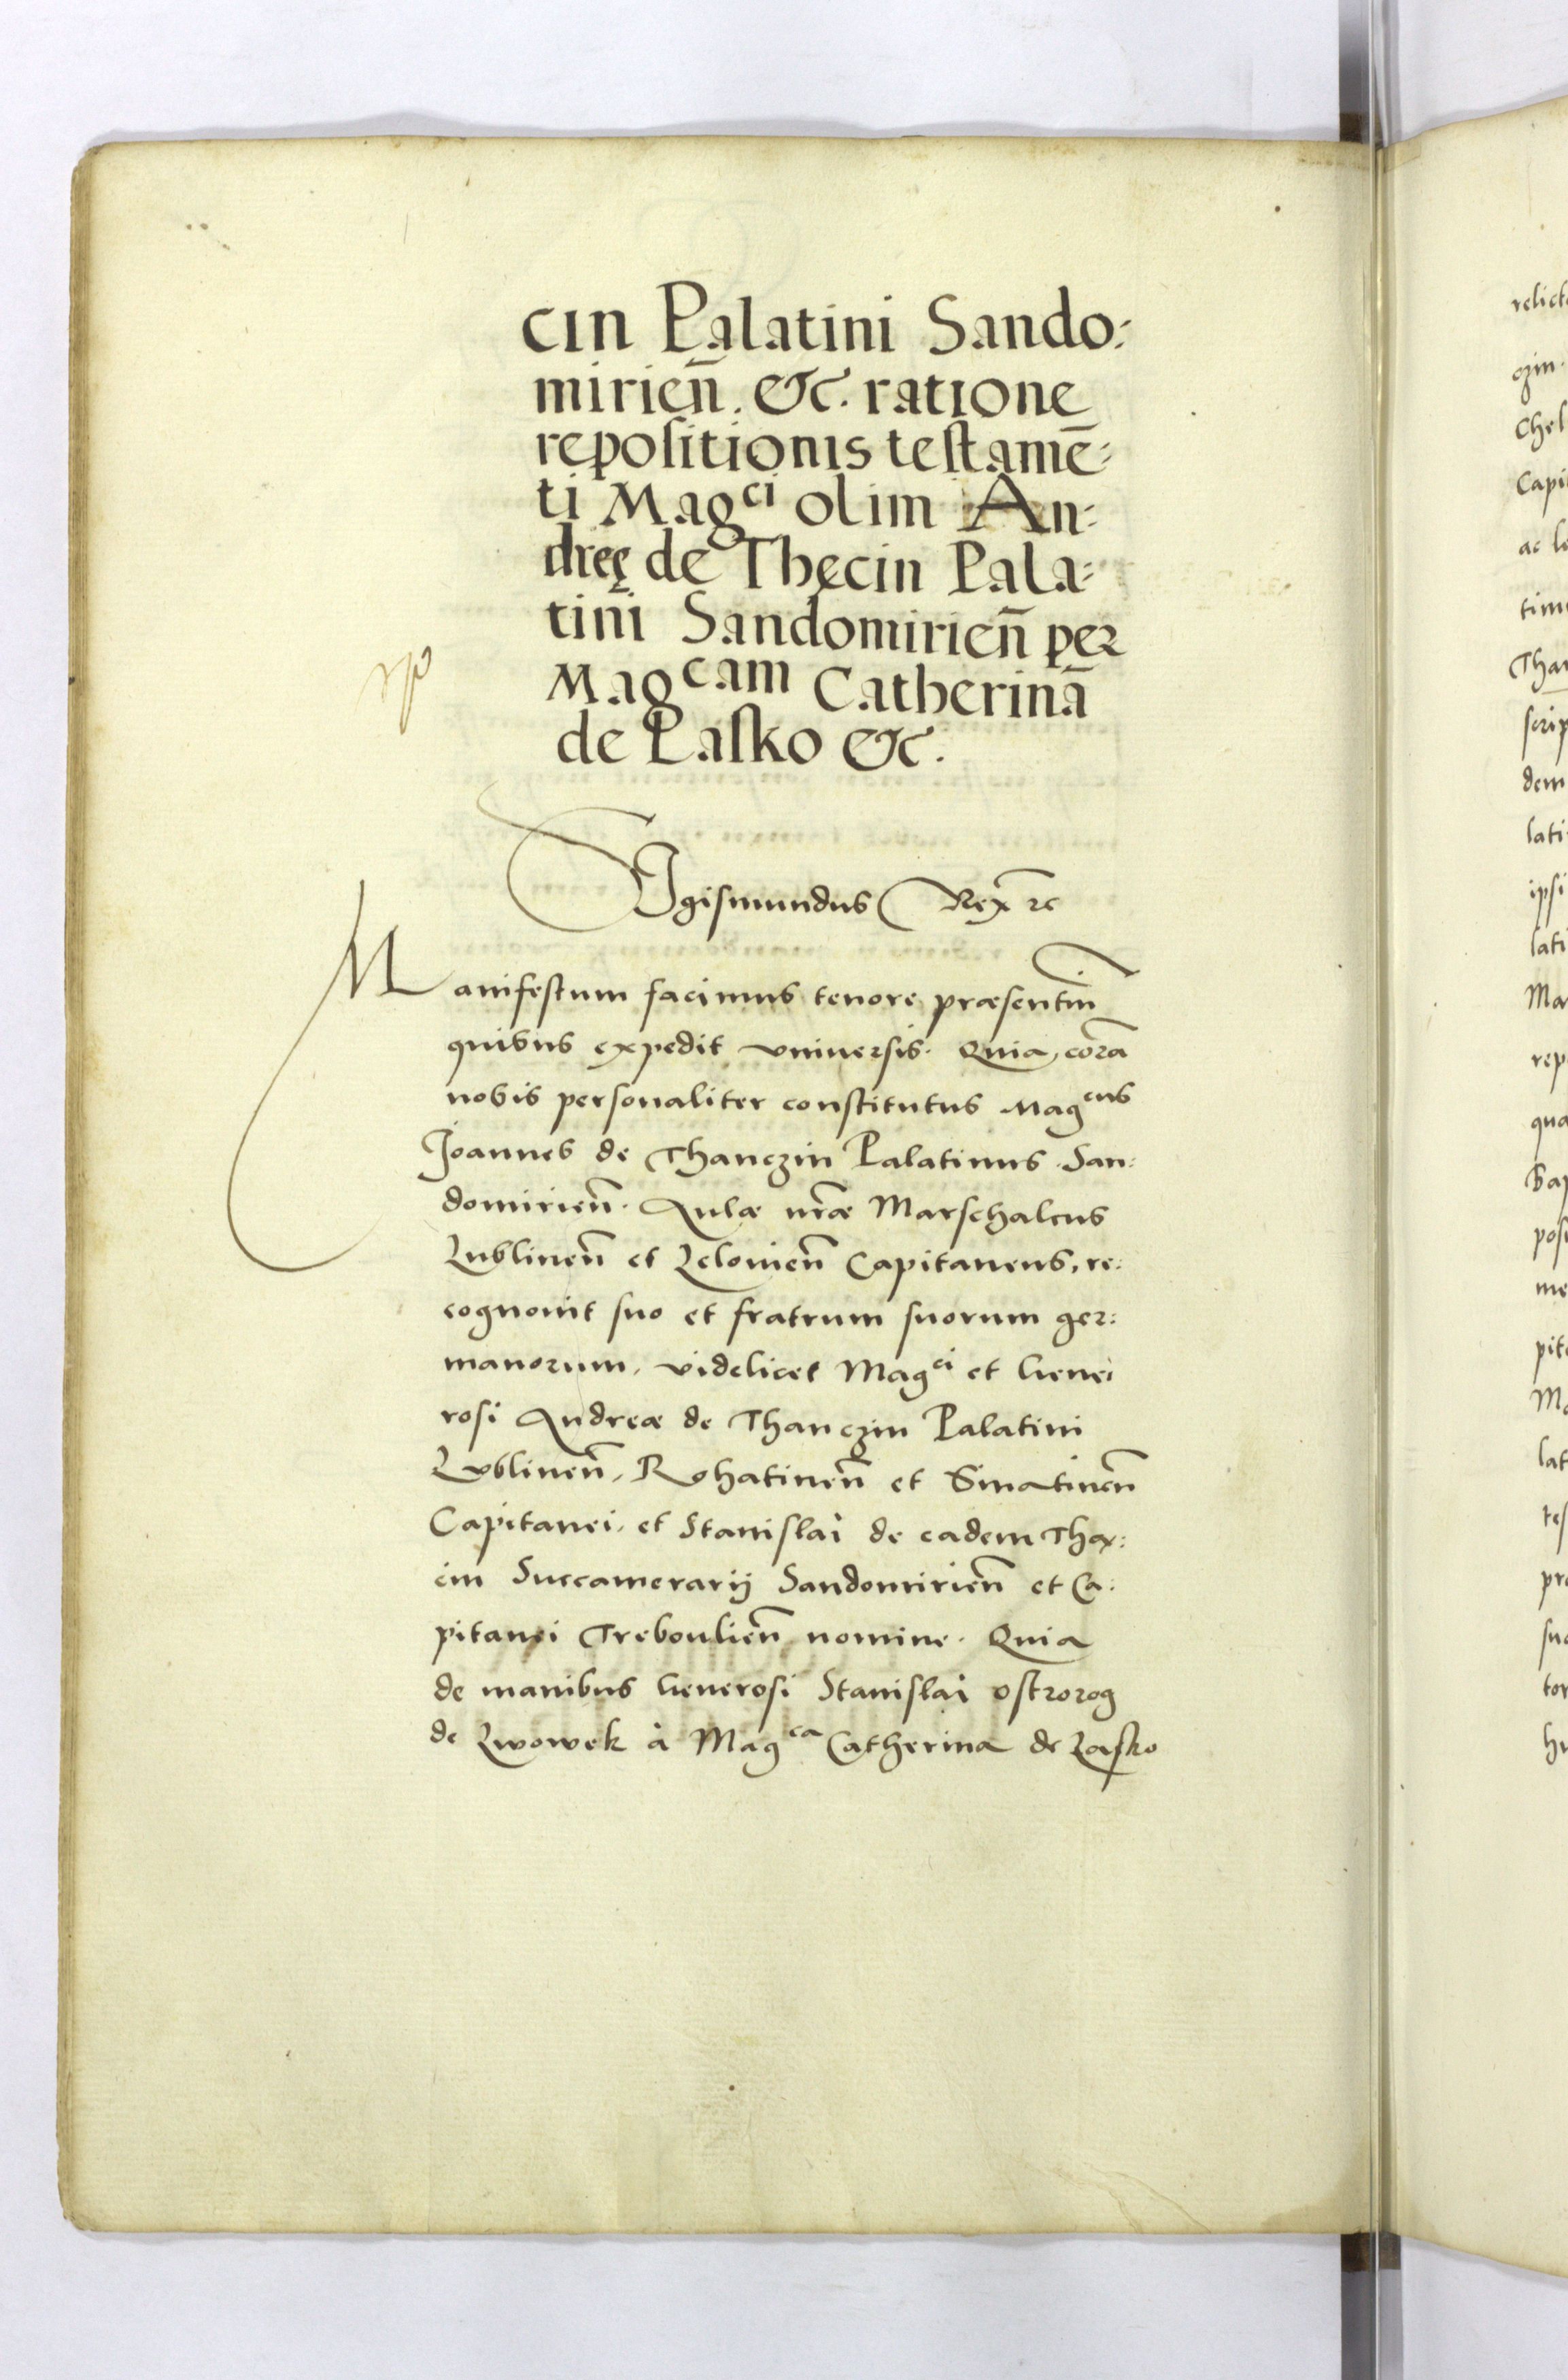 cin Palatini Sando:
mirien̄. &c. ratione
repoſitionis teſtamē:
ti Mag^ci olim An:
dreę de Thęcin Pala:
tini Sandomirien̄ per
Mag^cam Catherinā
de Laſko &c.
Sigismundus Rex ꝛc
Manifestum facimus tenore præsentiū
quibus expedit vniuersis. Quia, corā
nobis personaliter constitutus Mag^cus
Joannes de Thanczin Palatinus San:
domirien̄. Aulæ nr̄æ Marschalcus
Lublinen̄ et Zelouien̄ Capitaneus, re:
cognouit suo et fratrum suorum ger:
manorum, videlicet Mag^ci et Gene:
rosi Andreæ de Thanczin Palatini
Lublinen̄, Rohatinen̄ et Sniatinen̄
Capitanei, et Stanislai de eadem Thą:
cin Succamerarij Sandomirien̄ et Ca:
pitanei Treboulien̄ nomine. Quia
de manibus Generosi Stanislai ostrorog
de Lwowek à Mag^ca Catherina de Lasko
relict
czin.
Chel
Capi
ac le
tim
Than
scrip
dem
lati
ipsi
lati
Ma
rep
qua
posi
me
pit
Ma
lat
tes
pr
suo
tor